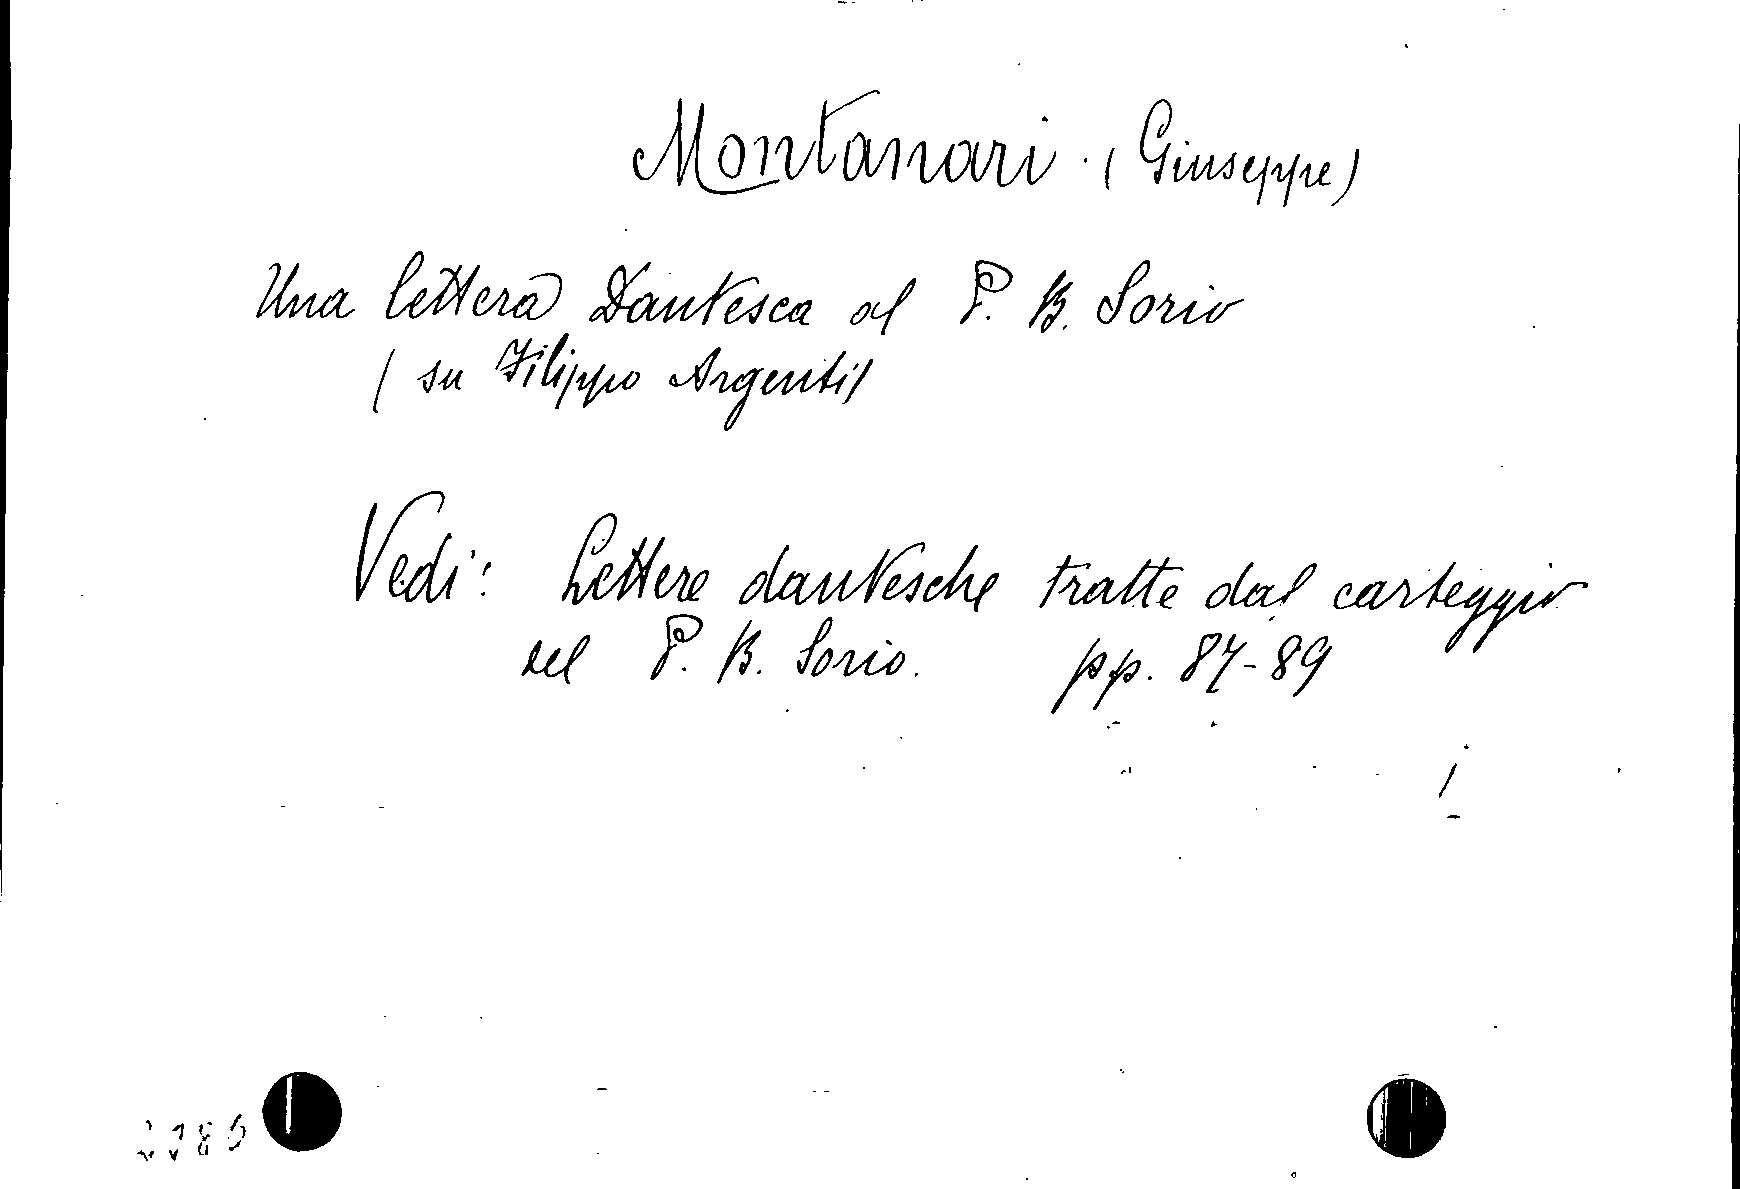 Montanari. (Giuseppe)
Una lettera Dantesca al P. B. Sorio
(su Filippo Argenti)
Vedi: Lettere dantesche tratte dal carteggio
del P. B. Sorio. pp. 87-89